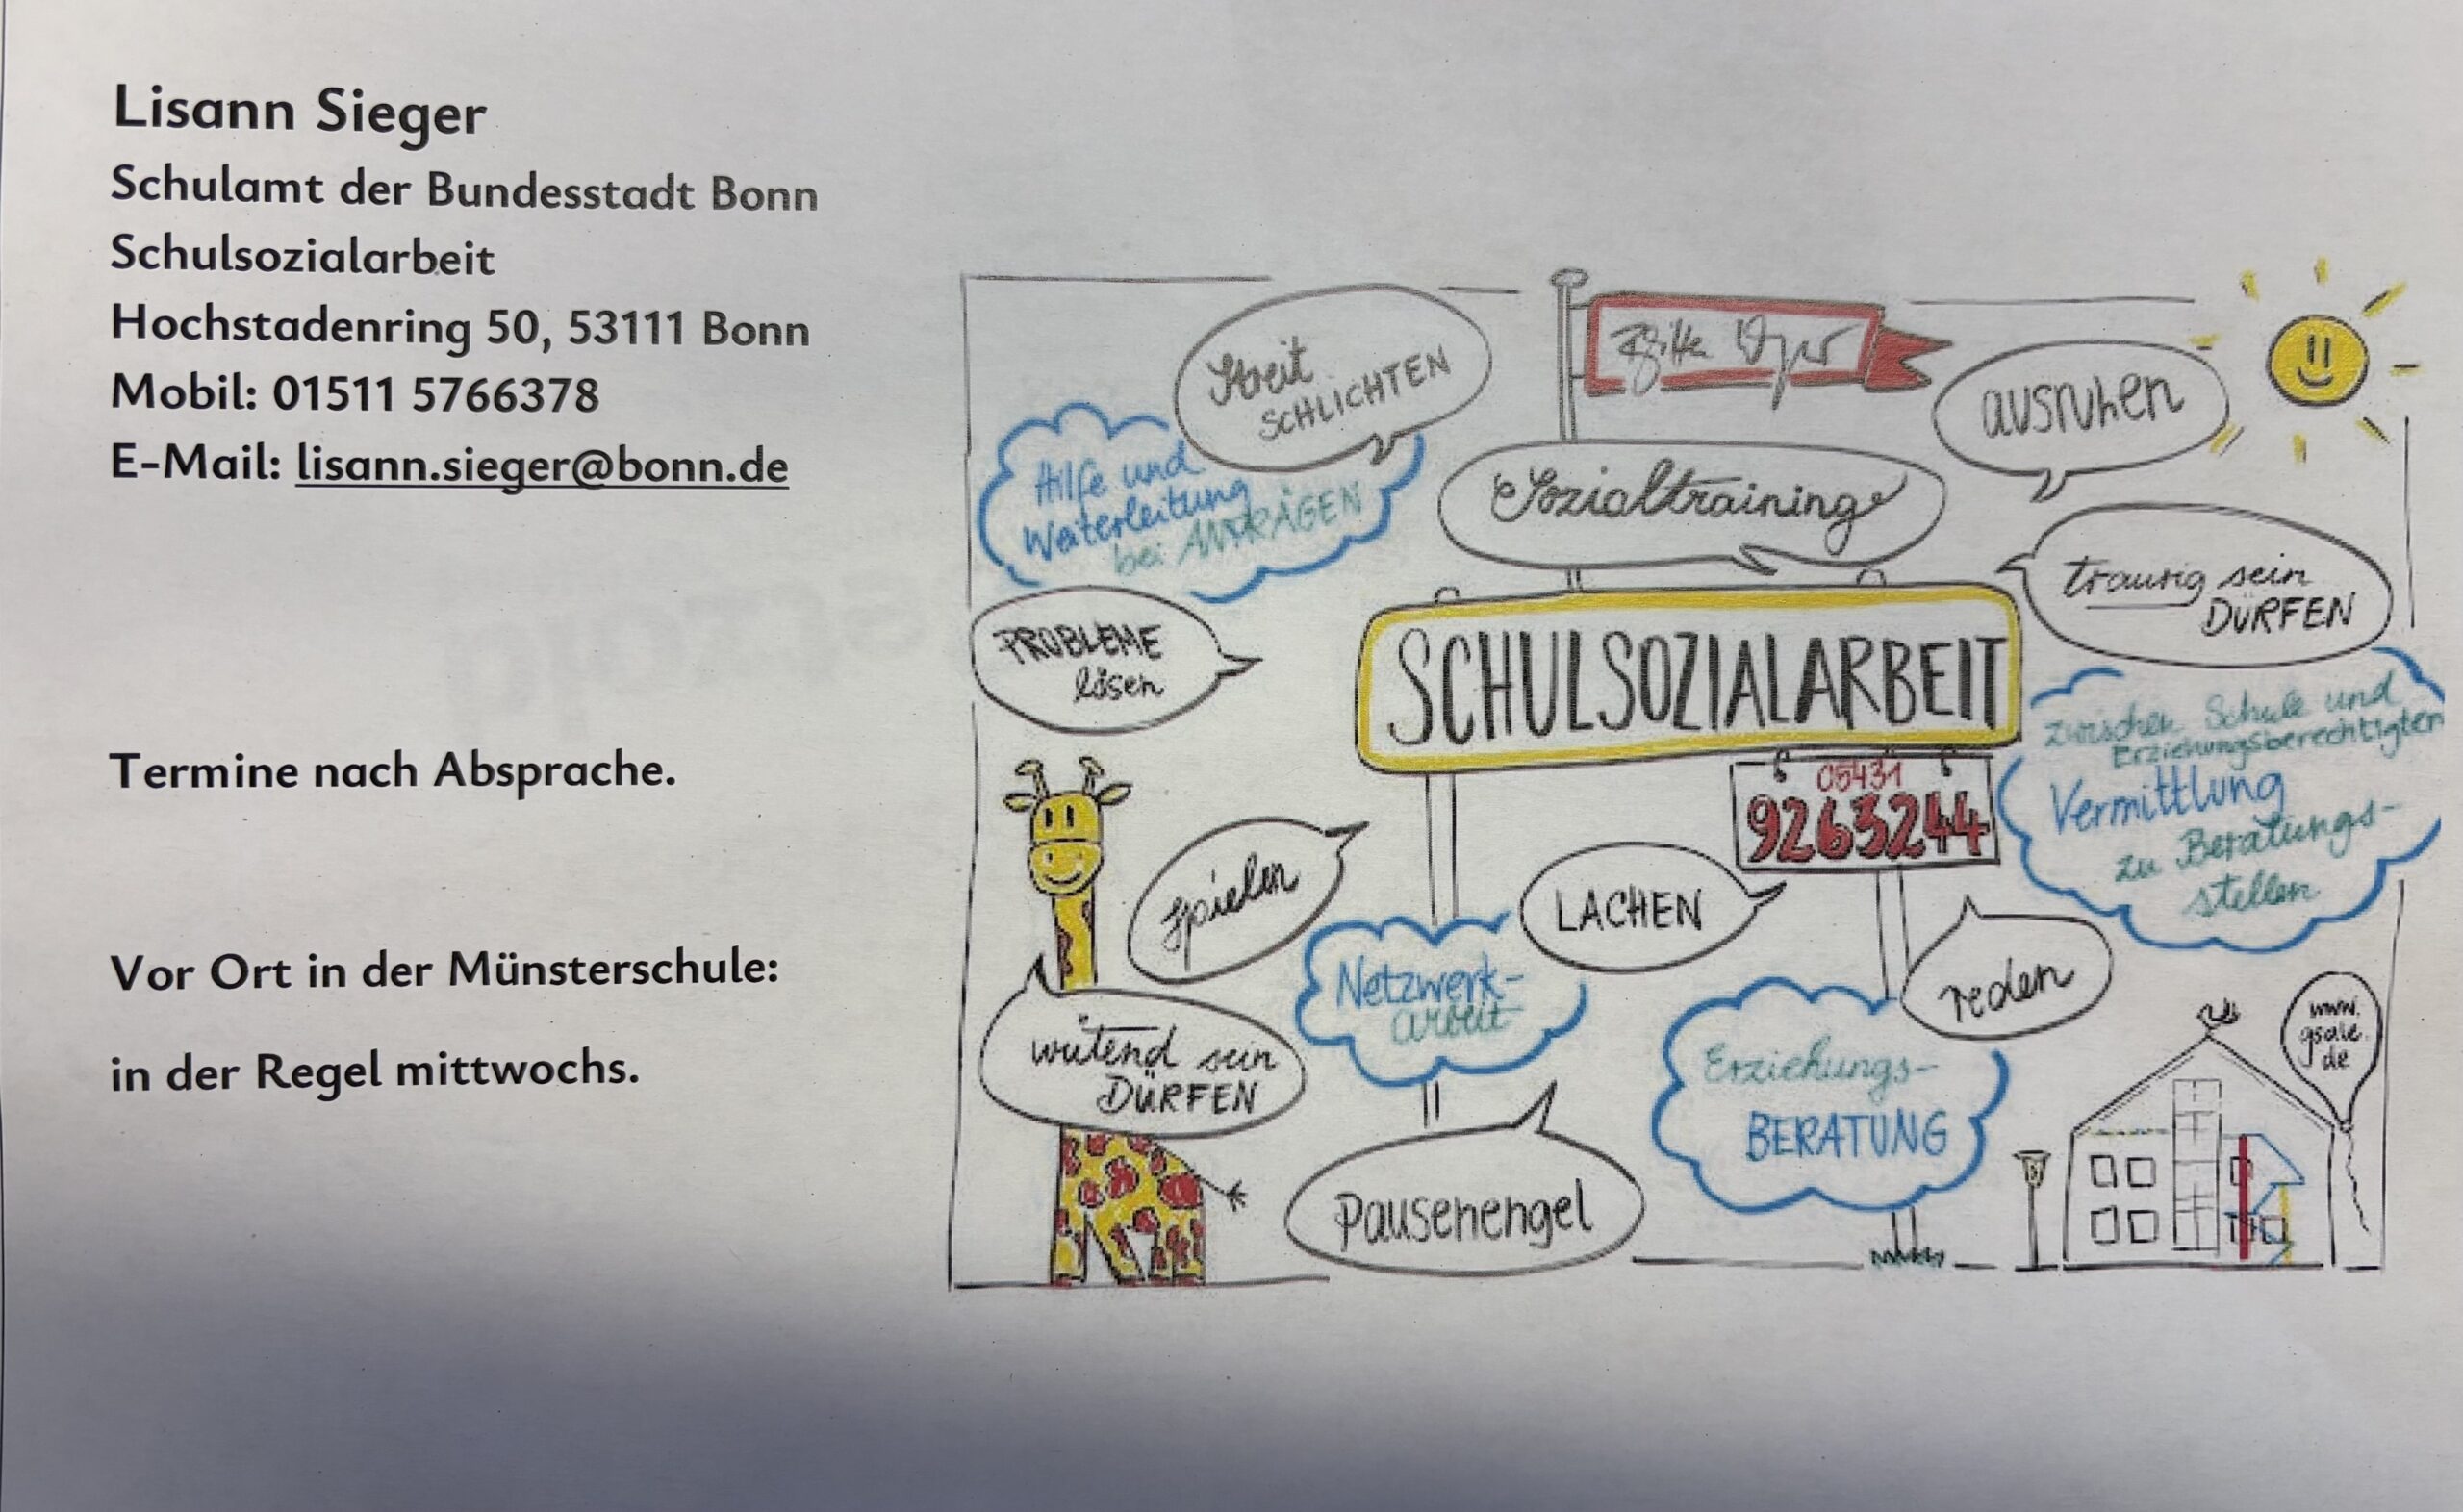 Lisann Sieger
Schulamt der Bundesstadt Bonn
Schulsozialarbeit
Hochstadenring 50, 53111 Bonn
Mobil: 01511 5766378
E-Mail: lisann.sieger@bonn.de
Termine nach Absprache.
Vor Ort in der Münsterschule:
in der Regel mittwochs.
Streit
SCHLICHTEN
ausruhen
Hilfe und
Weiterleitung
bei ANTRÄGEN
Sozialtraining
traurig sein
DÜRFEN
PROBLEME
lösen
SCHULSOZIALARBEIT
05431
9263244
zwischen Schule und
Erziehungsberechtigten
Vermittlung
zu Beratungs-
stellen
spielen
LACHEN
reden
Netzwerk-
arbeit
wütend sein
DÜRFEN
Erziehungs-
BERATUNG
Pausenengel
www.
gsale.
de